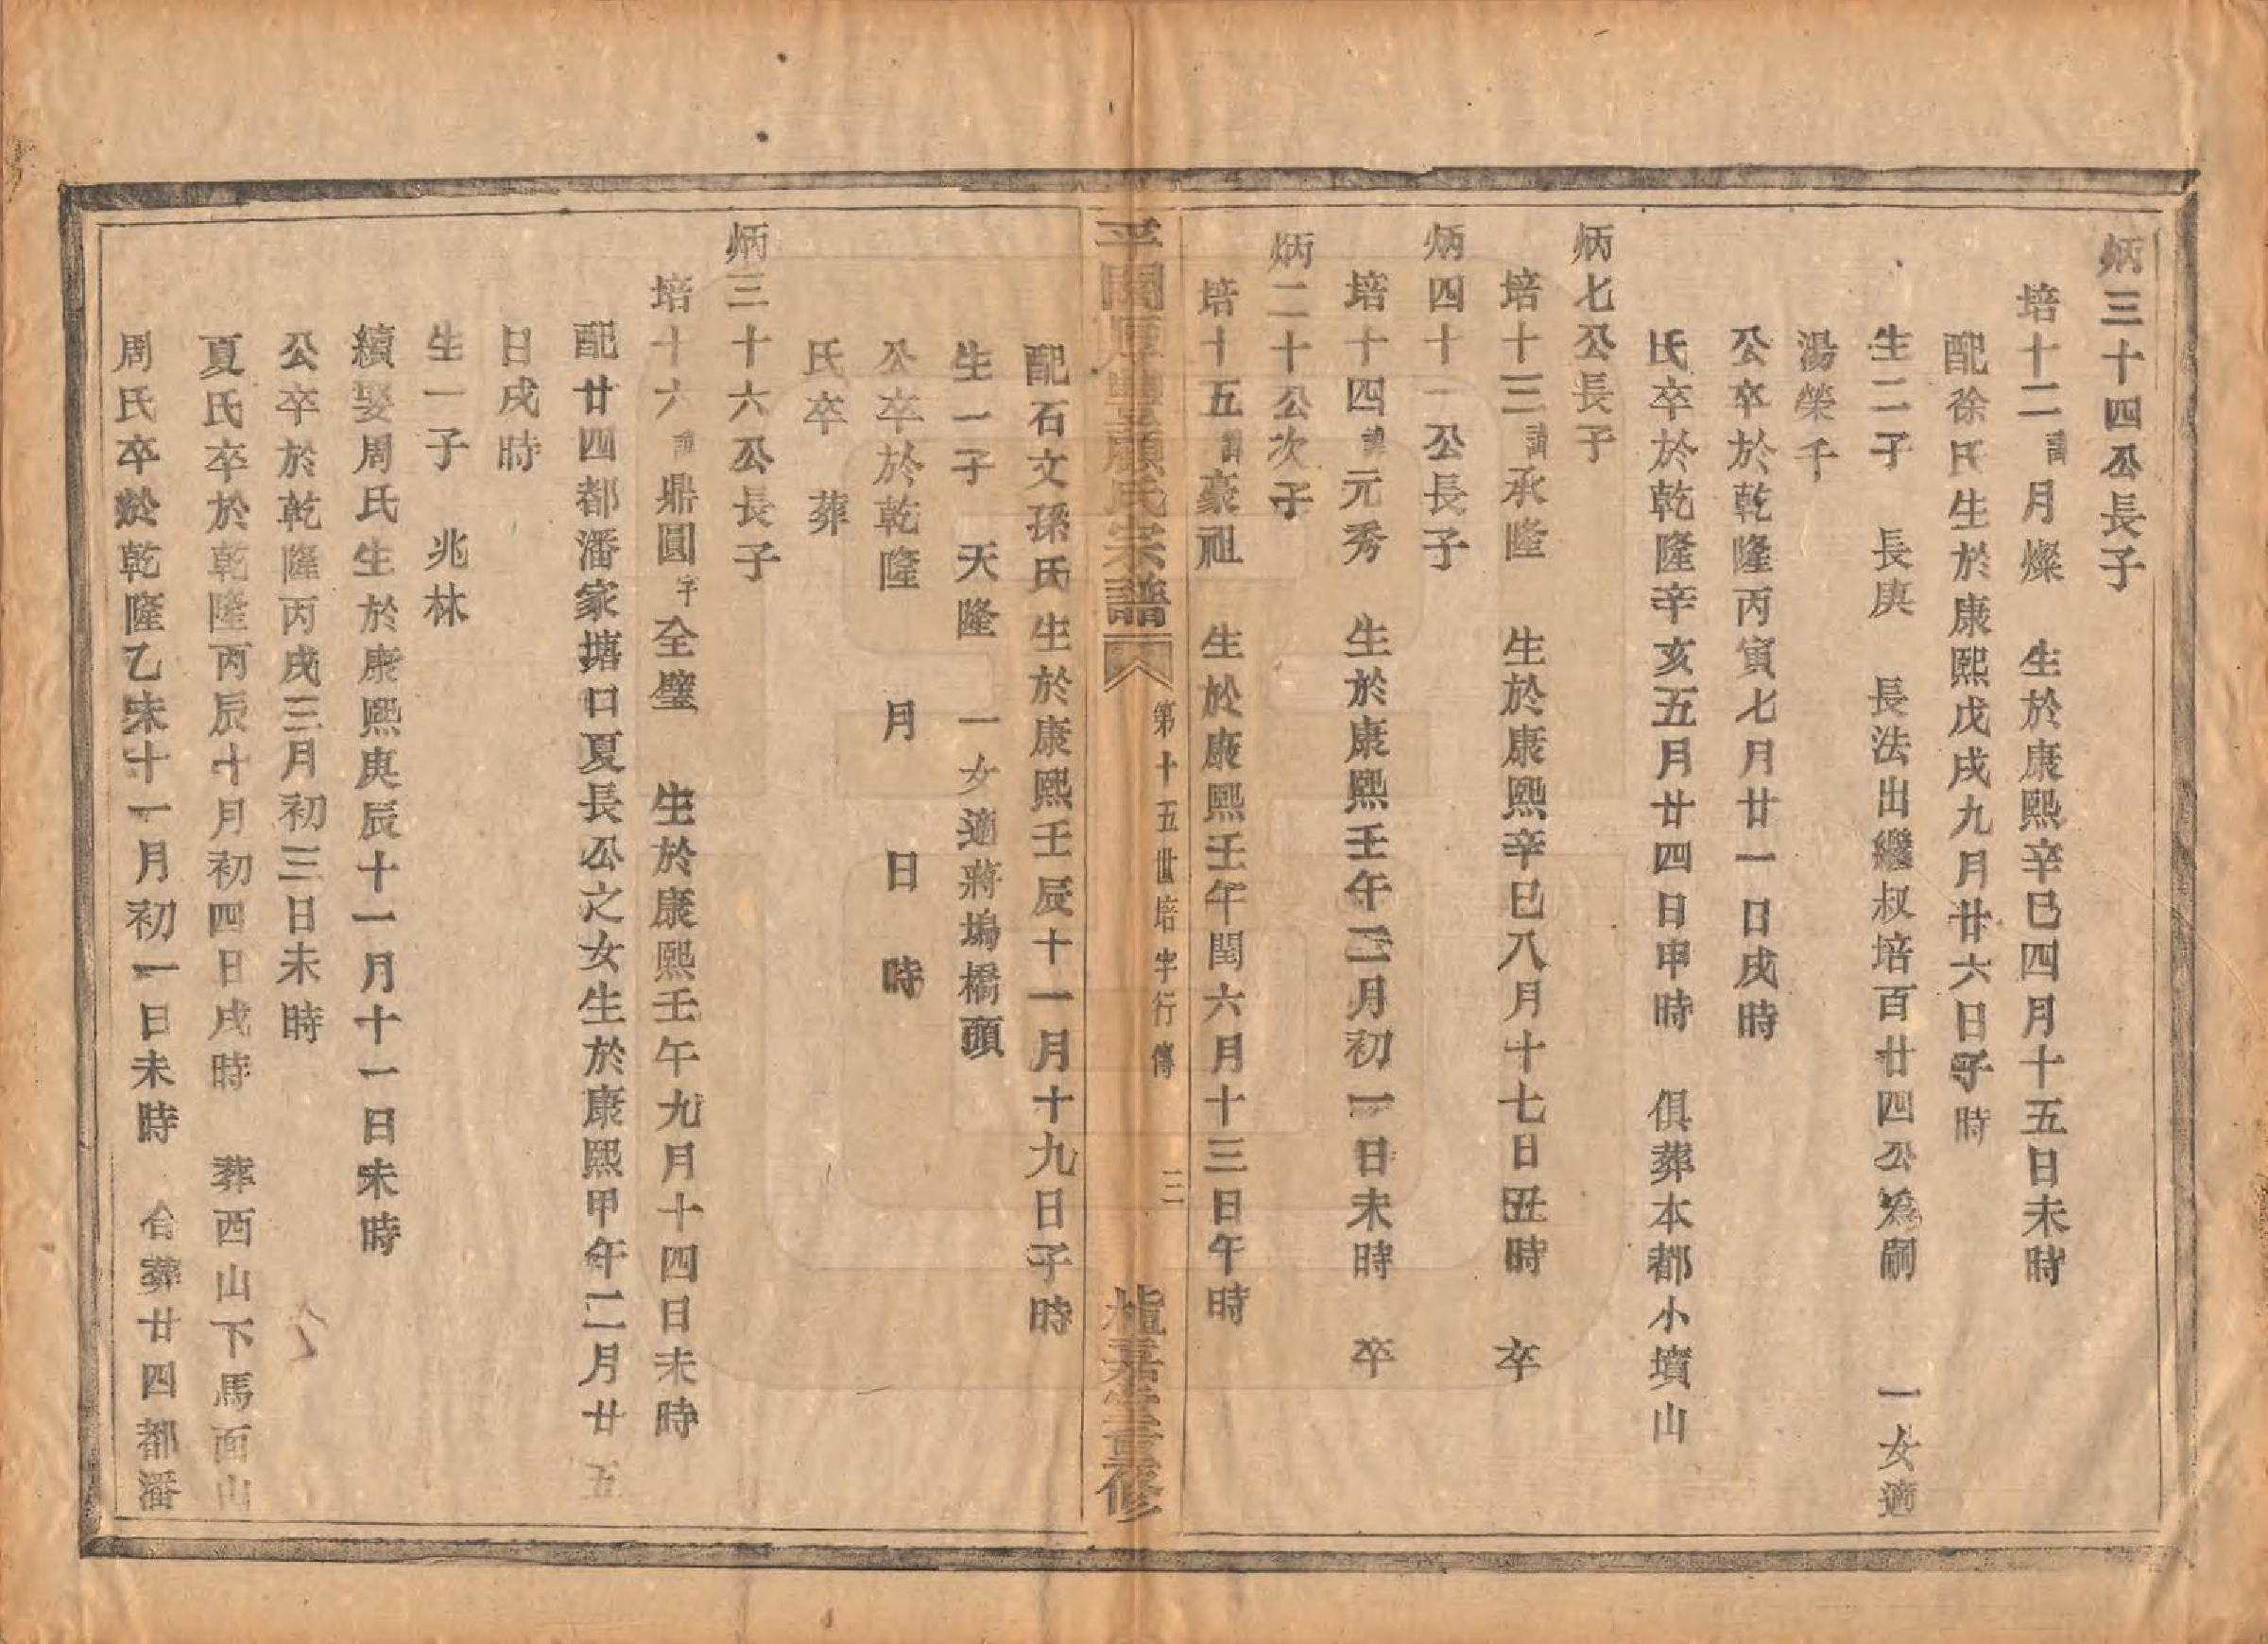 炳三十四公長子
培十二諱月燦　生於康熙辛巳四月十五日未時
配徐氏生於康熙戊戌九月廿六日子時
生二子　長庚　長法出繼叔培百廿四公為嗣　一女適
湯榮千
公卒於乾隆丙寅七月廿一日戌時
氏卒於乾隆辛亥五月廿四日申時　俱葬本都小墳山
炳七公長子
培十三諱承隆　生於康熙辛巳八月十七日丑時　卒
炳四十一公長子
培十四諱元秀　生於康熙壬午二月初一日未時　卒
炳二十公次子
培十五諱豪祖　生於康熙壬午閏六月十三日午時
平闗厚豐顏氏宗譜
第十五世培字行傳　三
嘉堂重修
配石文孫氏生於康熙壬辰十一月十九日子時
生一子　天隆　一女適蔣塢橋頭
公卒於乾隆　月　日　時
氏卒　葬
炳三十六公長子
培十六諱鼎圓字全璧　生於康熙壬午九月十四日未時
配廿四都潘家塘口夏長公之女生於康熙甲午二月廿五
日戌時
生一子　兆林
續娶周氏生於康熙庚辰十一月十一日未時
公卒於乾隆丙戌三月初三日未時
夏氏卒於乾隆丙辰十月初四日戌時　葬西山下馬面山
周氏卒於乾隆乙未十一月初一日未時　合葬廿四都潘